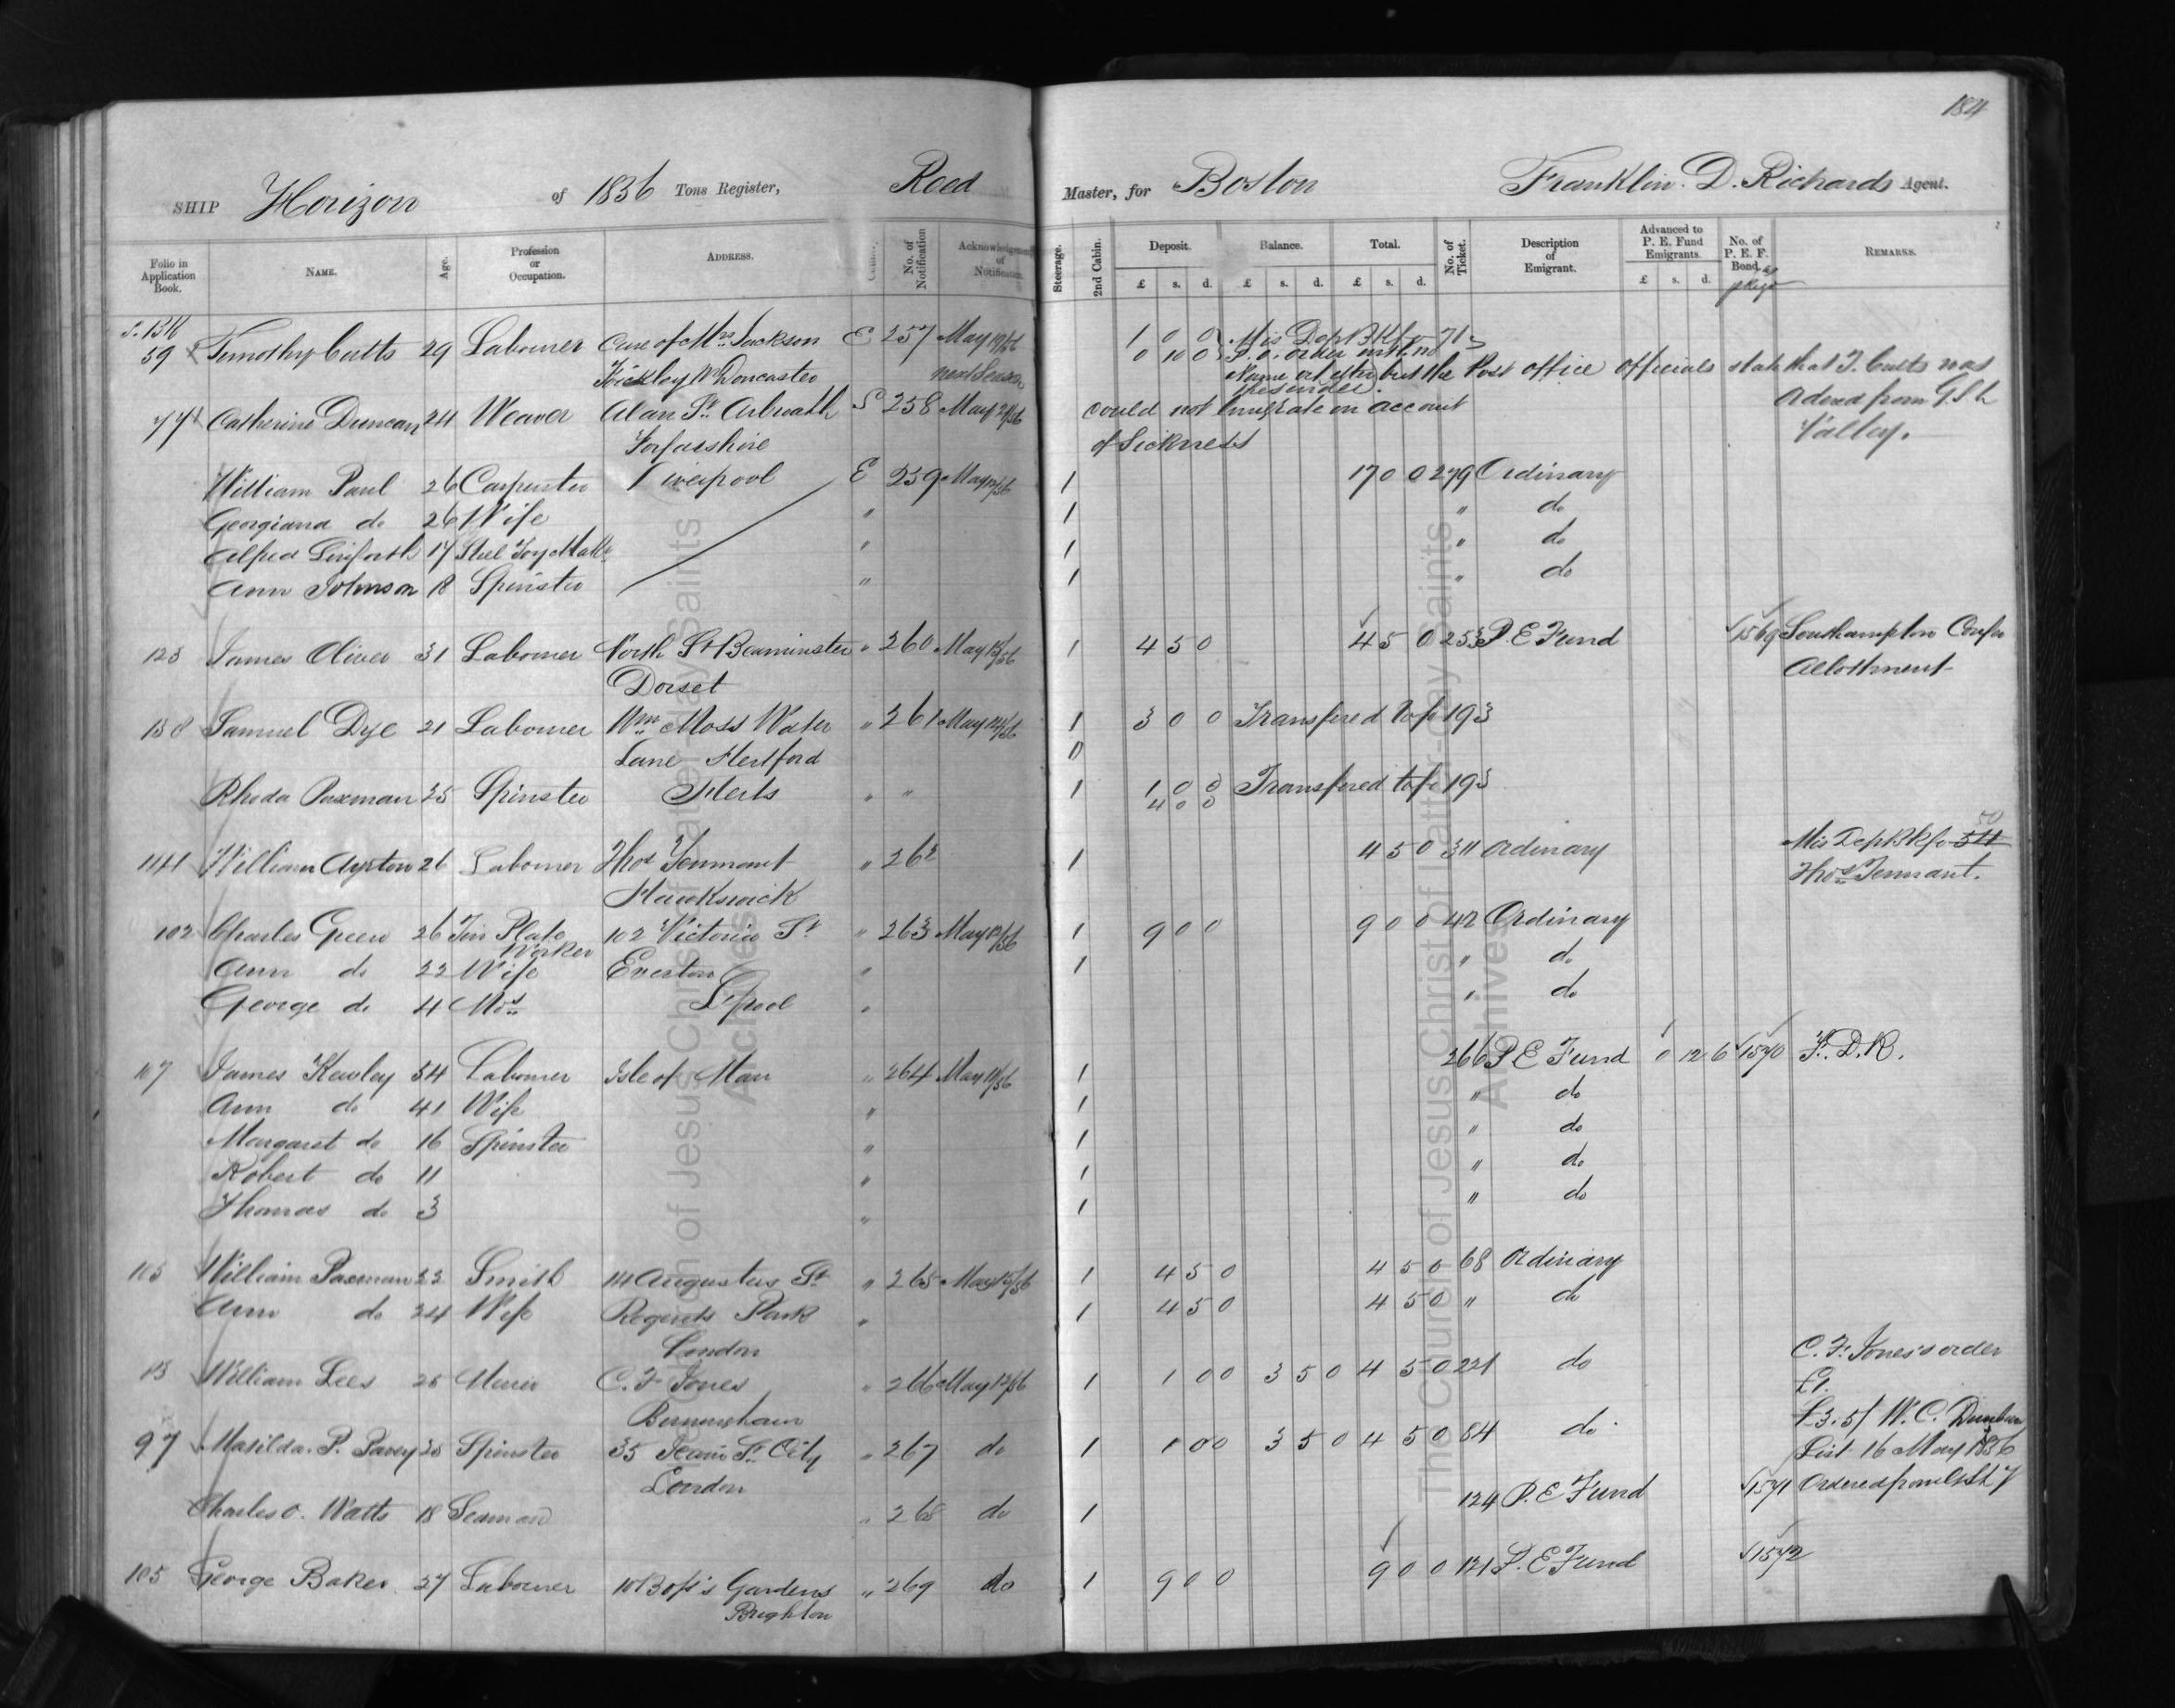 184
SHIP Horizon of 1836 Tons Register, Reed Master, for Boston Franklin. D. Richards Agent.
Folio in Application Book. NAME. Age. Profession or Occupation. ADDRESS. No. of Notification Acknowledgement of Notification. Steerage. 2nd Cabin. Deposit. £ s. d. Balance. £ s. d. Total. £ s. d. No. of Ticket. Description of Emigrant. Advanced to P. E. Fund Emigrants. £ s. d. No. of P. E. F. Bond. REMARKS.
59 Timothy Cutts 29 Labourer Care of Mrs Jackson E 257 May 1 0 0 Mis Dep BK fo 71
Nr Doncaster next Season 0 10 0 P.O. order
but the Post office officials state that T. Cutts was
the sender.
Catherine Duncan 24 Weaver Alan St. Arbroath S 258 May 2/56 could not Emigrate on account a dead from G.S.L.
Forfarshire of Sickness Valley.
William Paul 26 Carpenter Liverpool E 259 May 1 17 0 0 279 Ordinary
Georgiana do 26 Wife " 1 " do
Alfred Linforth 17 Steel Toy Maker " 1 " do
Ann Johnson 18 Spinster " 1 " do
123 James Oliver 31 Labourer North St Beaminster " 260 May 13/56 1 4 5 0 4 5 0 253 P. E Fund 1569 Southampton Confce
Dorset Allottment
138 Samuel Dye 21 Labourer Wm Moss Water " 261 May 14/56 1 3 0 0 Transfered to fo 193
Lane Hertford 0
Rhoda Paxman 35 Spinster Herts " " 1 1 0 0 Transfered to fo 193
4 0 0
50
1141 William Ayrton 26 Labourer Thos Tennant " 262 1 4 5 0 311 Ordinary Mis Dep BK fo 54
Hawkswick Thos Tennant.
102 Charles Green 26 Tin Plate 102 Victoria St " 263 May 12/56 1 9 0 0 9 0 0 42 Ordinary
Worker
Ann do 22 Wife Everton " 1 " do
George do 4 Mos L'pool " " do
117 James Kewley 54 Labourer Isle of Man " 264 May 11/56 1 266 P E Fund 0 12 6 1570 F. D. R.
Ann do 41 Wife " 1 " do
Margaret do 16 Spinster " 1 " do
Robert do 11 " 1 " do
Thomas do 3 " 1 " do
103 William Paxman 22 Smith 14 Augustus St " 265 May 15/56 1 4 5 0 4 5 0 68 Ordinary
Ann do 24 Wife Regents Park " 1 4 5 0 4 5 0 " do
London
13 William Lees 25 Miner C. F. Jones " 266 May 12/56 1 1 0 0 3 5 0 4 5 0 221 do C. F. Jones's order
Birmingham £1.
£3. 5/ W. C. Dunbar
97 Matilda. P. Pavey 35 Spinster 35 Jewin St. City " 267 do 1 1 0 0 3 5 0 4 5 0 84 do List 16 May 1856
London
Charles O. Watts 18 Seaman " 268 do 1 124 P. E Fund 1571 Ordered from
105 George Baker 27 Labourer 10 Boss's Gardens " 269 do 1 9 0 0 9 0 0 121 P. E Fund 1572
Brighton
The Church of Jesus Christ of Latter-day Saints
Archives